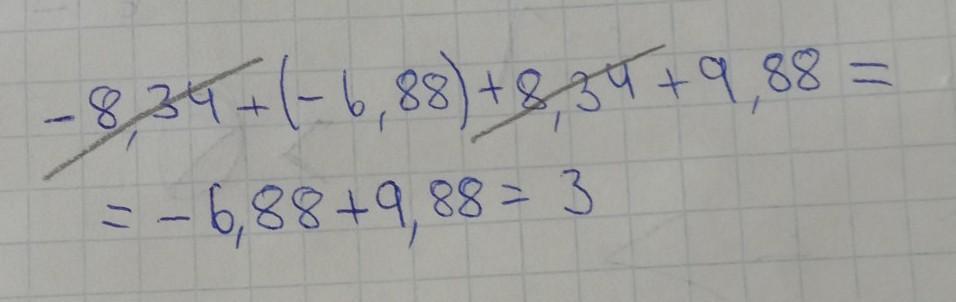 -8,34+(-6,88)+8,34+9,88=
=-6,88+9,88=3